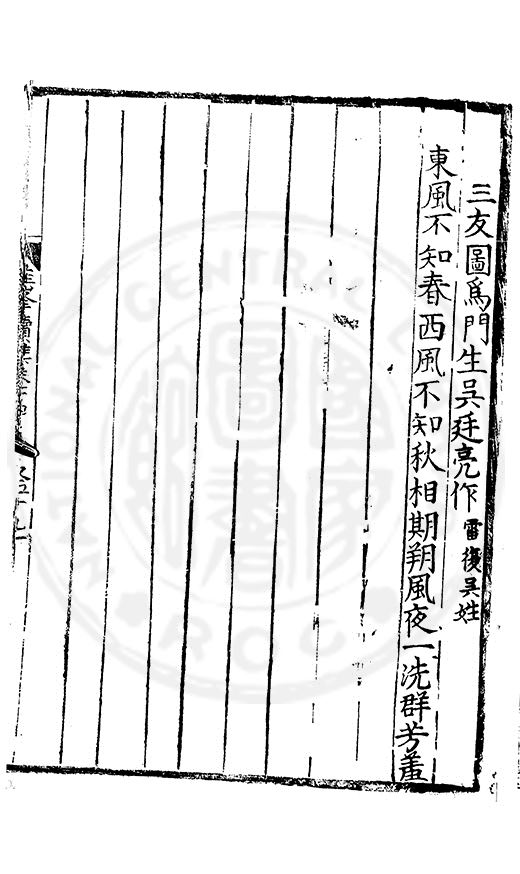 三友圖爲門生吳廷亮作 雷復吳姓
東風不知春西風不知秋相期朔風夜一洗群芳羞
NATIONAL CENTRAL